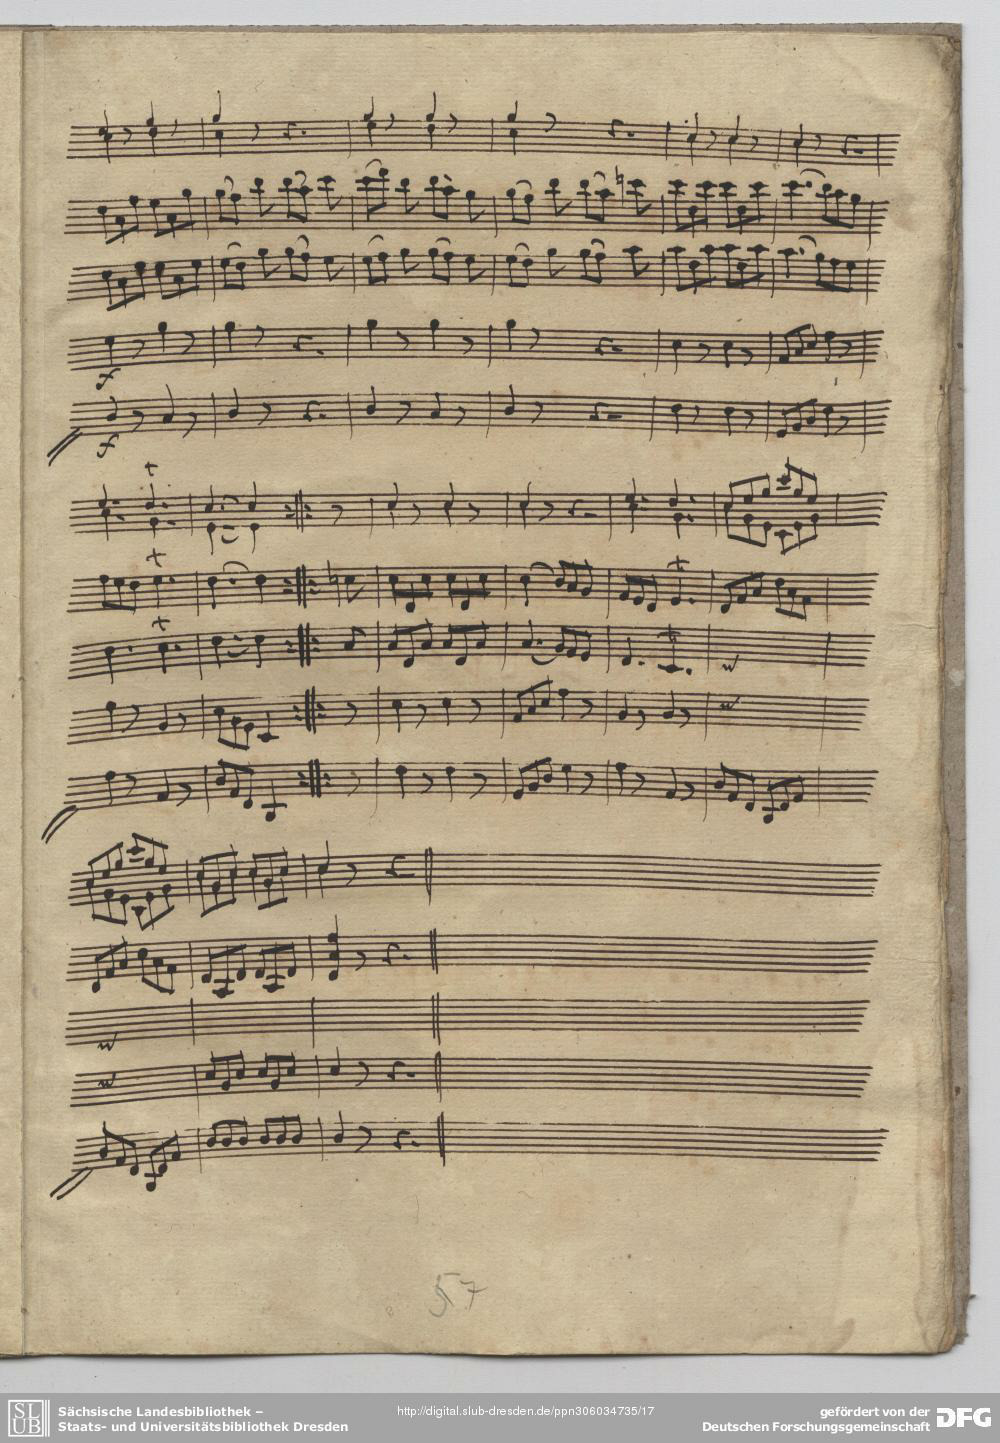 f
f
57
SLUB
Sächsische Landesbibliothek –
Staats- und Universitätsbibliothek Dresden
http://digital.slub-dresden.de/ppn306034735/17
gefördert von der
Deutschen Forschungsgemeinschaft
DFG